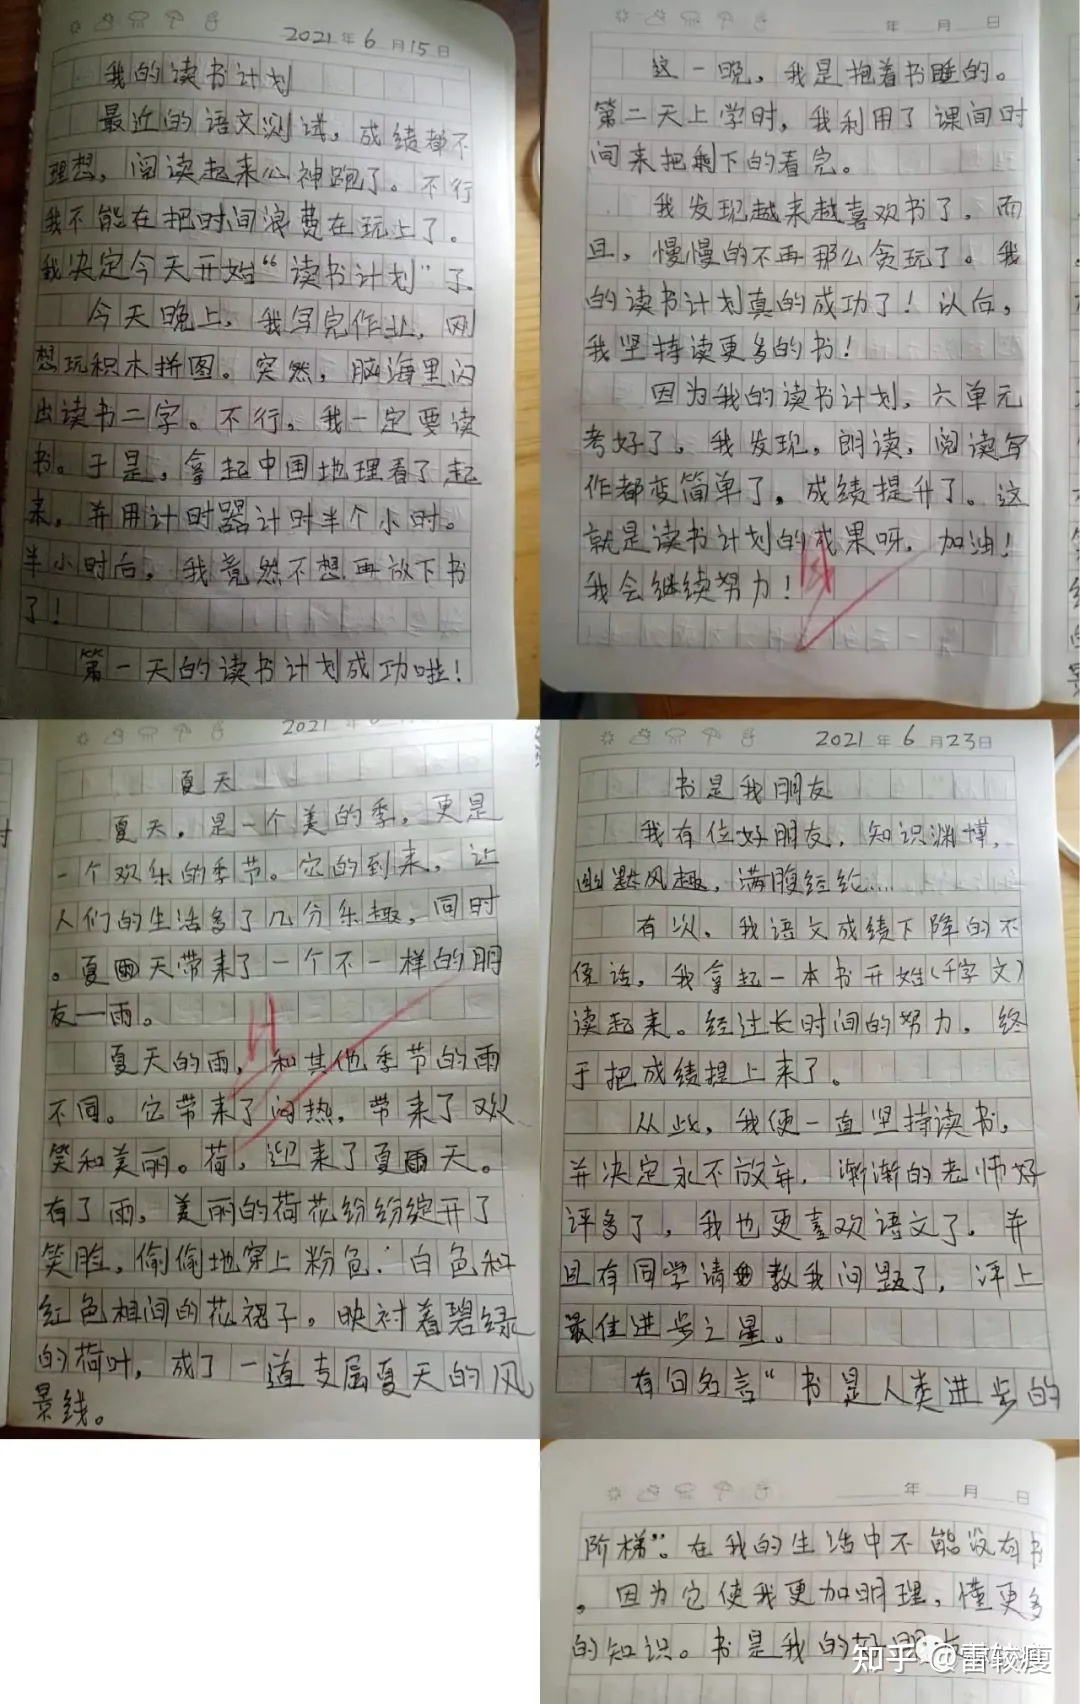 2021年6月15日
我的读书计划
最近的语文测试，成绩都不
理想，阅读起来心神跑了。不行
我不能在把时间浪费在玩上了。
我决定今天开始“读书计划”了
今天晚上，我写完作业，刚
想玩积木拼图。突然，脑海里闪
出读书二字。不行，我一定要读
书。于是，拿起中国地理看了起
来，并用计时器计时半个小时。
半小时后，我竟然不想再放下书
了！
第一天的读书计划成功啦！
年 月 日
这一晚，我是抱着书睡的。
第二天上学时，我利用了课间时
间来把剩下的看完。
我发现越来越喜欢书了，而
且，慢慢的不再那么贪玩了。我
的读书计划真的成功了！以后，
我坚持读更多的书！
因为我的读书计划，六单元
考好了。我发现，朗读，阅读写
作都变简单了，成绩提升了。这
就是读书计划的成果呀，加油！
我会继续努力！
2021年6
夏天
夏天，是一个美的季，更是
一个欢乐的季节。它的到来，让
人们的生活多了几分乐趣，同时
。夏天带来了一个不一样的朋
友一雨。
夏天的雨，和其他季节的雨
不同。它带来了闷热，带来了欢
笑和美丽。荷，迎来了夏雨天。
有了雨，美丽的荷花纷纷绽开了
笑脸，偷偷地穿上粉色：白色和
红色相间的花裙子，映衬着碧绿
的荷叶，成了一道专属夏天的风
景线。
2021年6月23日
书是我朋友
我有位好朋友，知识渊博，
幽默风趣，满腹经纶……
有次，我语文成绩下降的不
像话，我拿起一本书开始(千字文)
读起来。经过长时间的努力，终
于把成绩提上来了。
从此，我便一直坚持读书，
并决定永不放弃，渐渐的老师好
评多了，我也更喜欢语文了。并
且有同学请教我问题了，评上
最佳进步之星。
有句名言“书是人类进步的
年 月 日
阶梯”。在我的生活中不能没有书
，因为它使我更加明理，懂更多
的知识。书是我的好朋
知乎 @雷较瘦